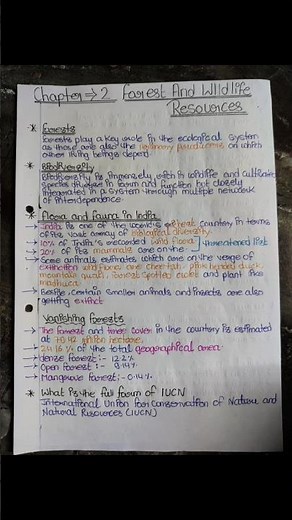 Chapter ⇒ 2 Forest And Wildlife
Resources
* Forests
Forests play a key role in the ecological system
as these are also the primary producers on which
other living beings depend
* Biodiversity
Biodiversity is immensely rich in wildlife and cultivated
species diverse in form and function but closely
integrated in a system through multiple network
of interdependence.
* Flora and fauna in India
→ India is one of the world's richest country in terms
of its vast array of biological diversity
→ 10% of India's recorded wild flora
→ 20% of its mammals are on the threatened list
→ Some animals estimates which are on the verge of
extinction cheetah, pink headed duck,
mountain quail, forest spotted owlet and plant like
madhuca
→ Beside certain smaller animals and insects are also
getting extinct
* Vanishing Forests
→ The forest and tree cover in the country is estimated
at million hectare
→ 24.16 % of the total geographical area
→ dense Forest :- 12.2 %
→ Open Forest :- 9.14%
→ Mangrove Forest :- 0.14%
* What is the full form of IUCN
International Union for Conservation of Nature and
Natural Resources (IUCN)